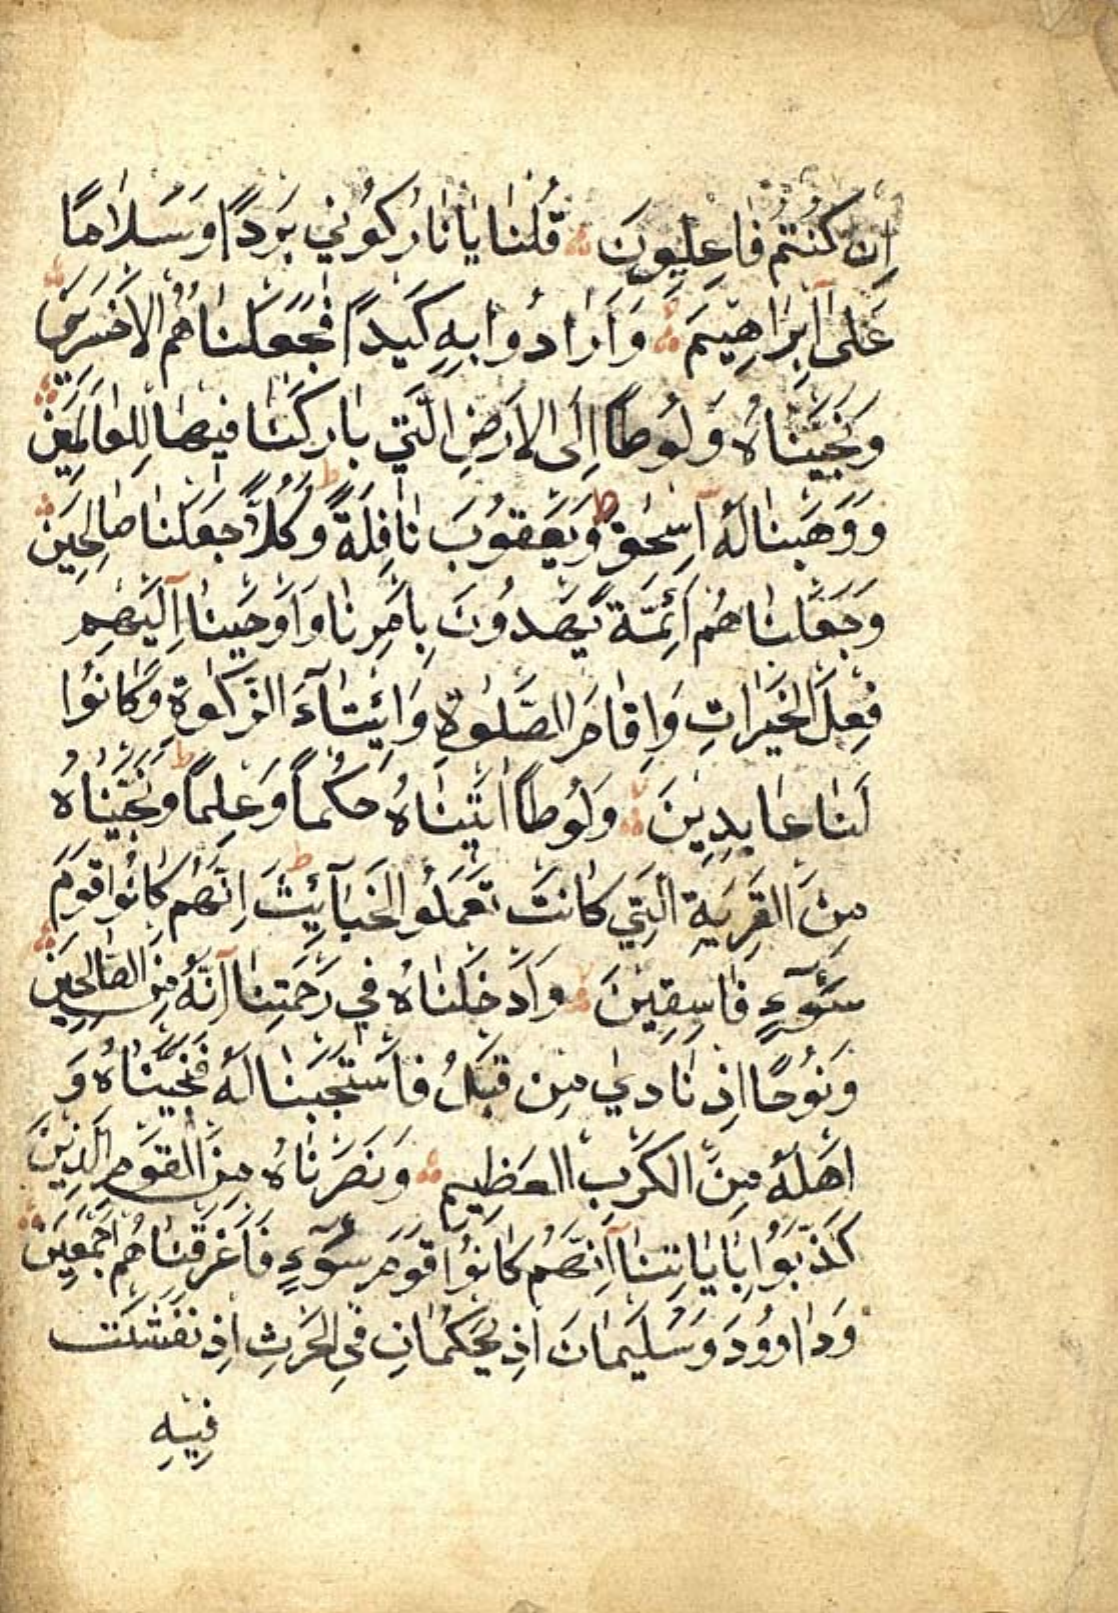 اِن كُنتُم فَاعِلِيِنَ قُلنَا يَا نَارُ كُونِي بَردًا وَسَلَامًا
عَلَى اِبرَاهِيمَ وَاَرَادُوا بِهِ كَيدًا فَجَعَلنَاهُمُ الاَخسَرِينَ
وَنَجَّينَاهُ وَلُوطًا اِلَى الاَرضِ الَّتِي بَارَكنَا فِيهَا لِلعَالَمِينَ
وَوَهَبنَا لَهُ اِسحٰقَ وَيَعقُوبَ نَافِلَةً وَكُلًّا جَعَلنَا صَالِحِينَ
وَجَعَلنَاهُم اَئِمَّةً يَهدُونَ بِاَمرِنَا وَاَوحَينَا اِلَيهِم
فِعلَ الخَيرَاتِ وَاِقَامَ الصَّلٰوةِ وَاِيتَآءَ الزَّكٰوةِ وَكَانُوا
لَنَا عَابِدِينَ وَلُوطًا اٰتَينَاهُ حُكمًا وَعِلمًا وَنَجَّينَاهُ
مِنَ القَريَةِ الَّتِي كَانَت تَعمَلُ الخَبَآئِثَ اِنَّهُم كَانُوا قَومَ
سَوءٍ فَاسِقِينَ وَاَدخَلنَاهُ فِي رَحمَتِنَا اِنَّهُ مِنَ الصَّالِحِينَ
وَنُوحًا اِذ نَادٰي مِن قَبلُ فَاستَجَبنَا لَهُ فَنَجَّينَاهُ وَ
اَهلَهُ مِنَ الكَربِ العَظِيمِ وَنَصَرنَاهُ مِنَ القَومِ الَّذِينَ
كَذَّبُوا بِاٰيَاتِنَا اِنَّهُم كَانُوا قَومَ سَوءٍ فَاَغرَقنَاهُم اَجمَعِينَ
وَدَاوُودَ وَسُلَيمَانَ اِذ يَحكُمَانِ فِي الحَرثِ اِذ نَفَشَت
فِيهِ